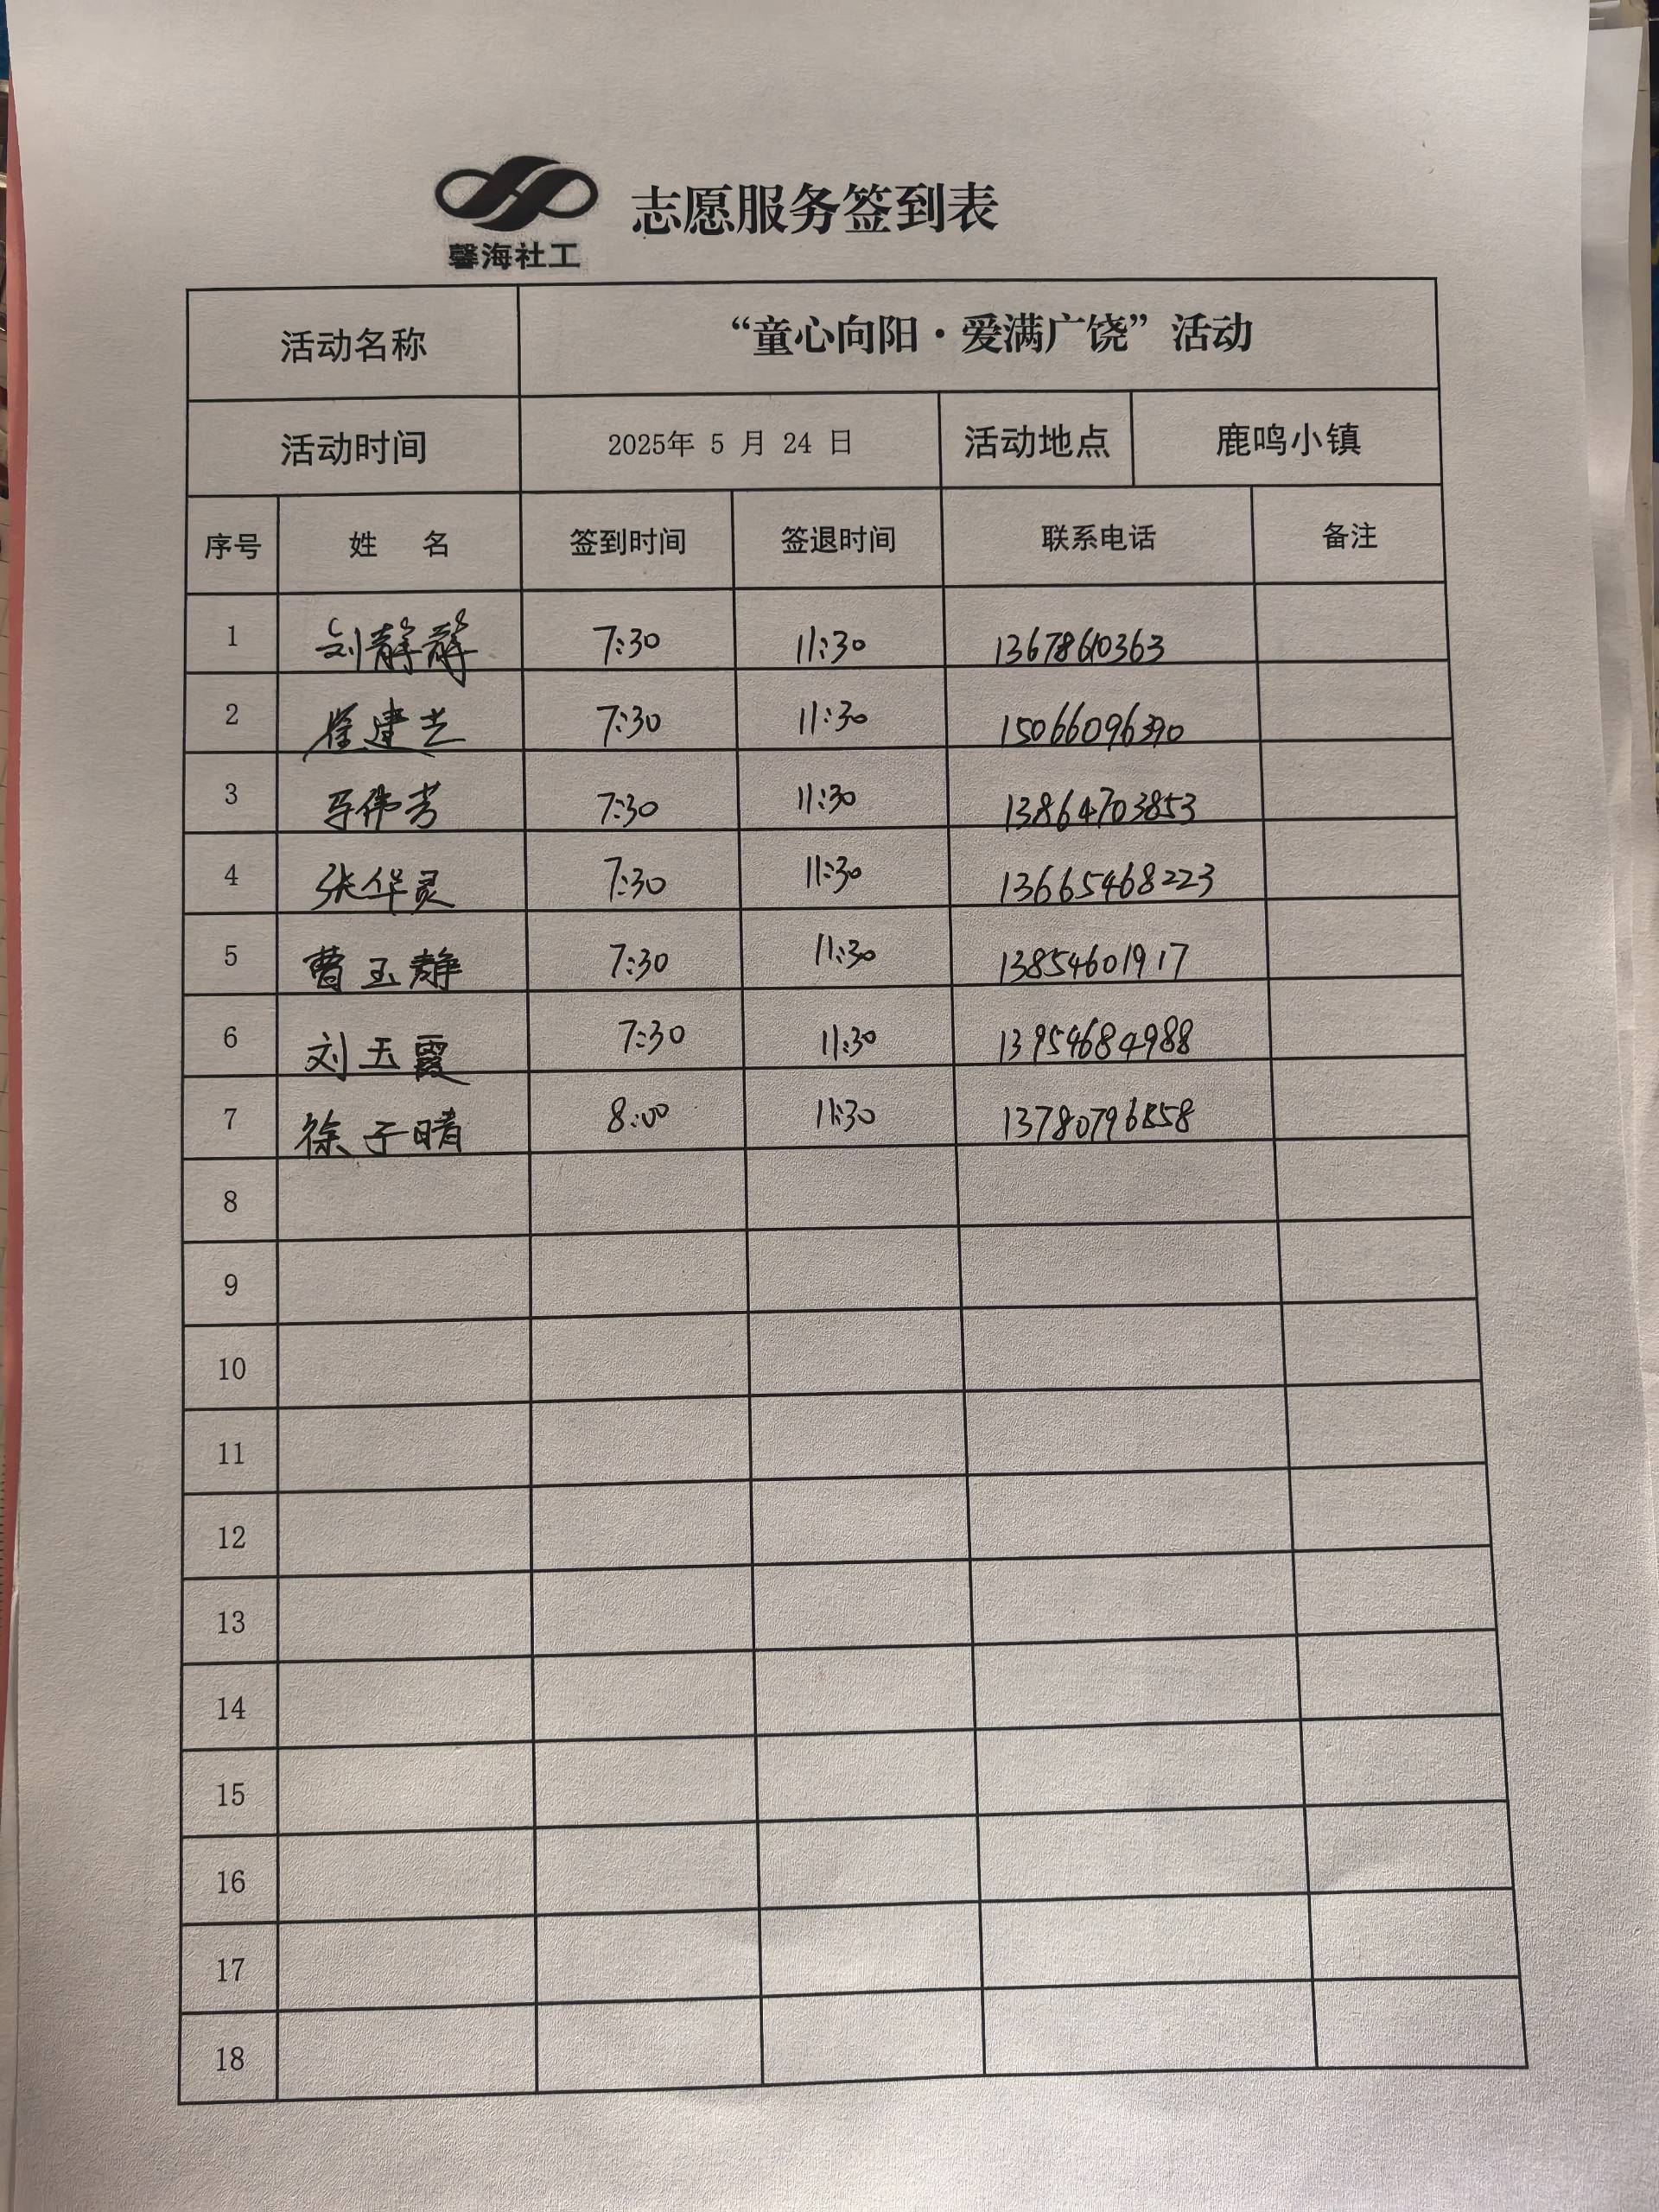 馨海社工
志愿服务签到表
活动名称 “童心向阳·爱满广饶”活动
活动时间 2025年 5 月 24 日 活动地点 鹿鸣小镇
序号 姓 名 签到时间 签退时间 联系电话 备注
1 刘静静 7:30 11:30 13678610363
2 崔建兰 7:30 11:30 15066096390
3 伟芳 7:30 11:30 13864703853
4 张华灵 7:30 11:30 13665468223
5 曹玉静 7:30 11:30 13854601917
6 刘玉霞 7:30 11:30 13954684988
7 徐子晴 8:00 11:30 13780796858
8
9
10
11
12
13
14
15
16
17
18